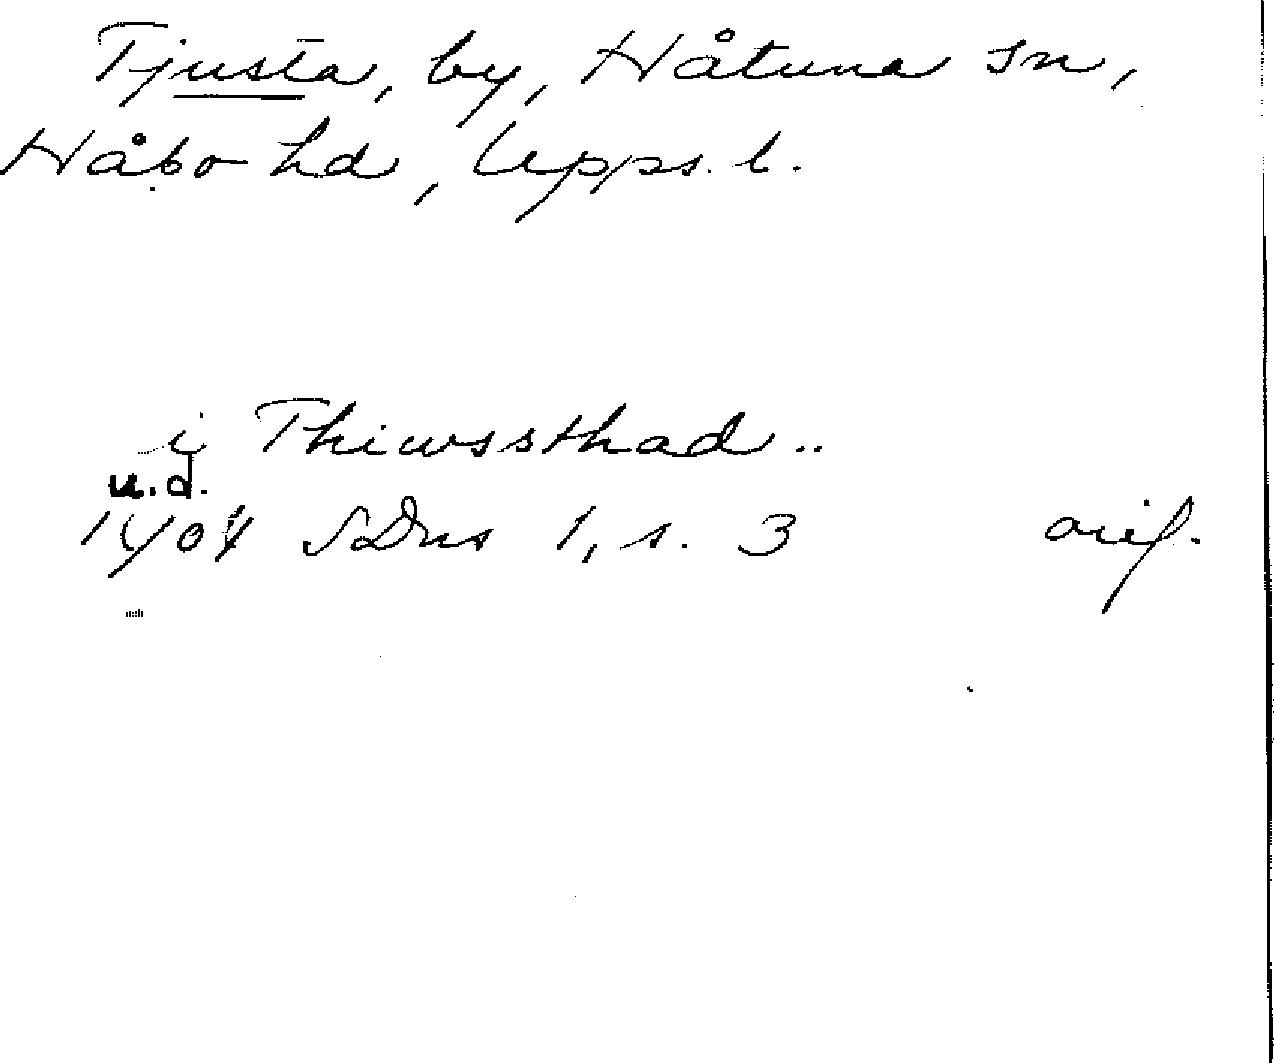 Tjusta, by, Håtuna sn,
Håbo hd, Upps. l.
i Thiwssthad..
u.d.
SDns 1, s. 3 orig.